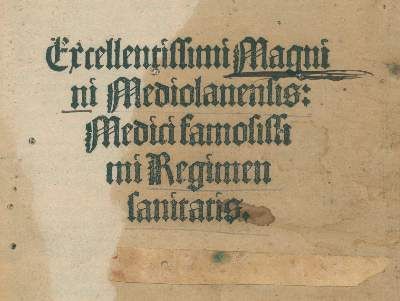 Excellentissimi Magni
ni Mediolanensis:
Medici famosissi
mi Regimen
sanitatis.